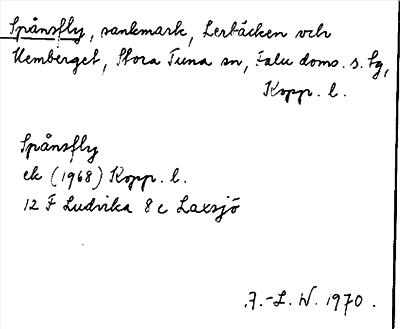 Spånsfly, sankmark, Lerbäcken och
Uemberget, Stora Tuna sn, Falu doms. s. lg,
Kopp. l.
Spånsfly
ek (1968) Kopp. l.
12 F Ludvika 8 c Laxsjö
A.-L. W. 1970.